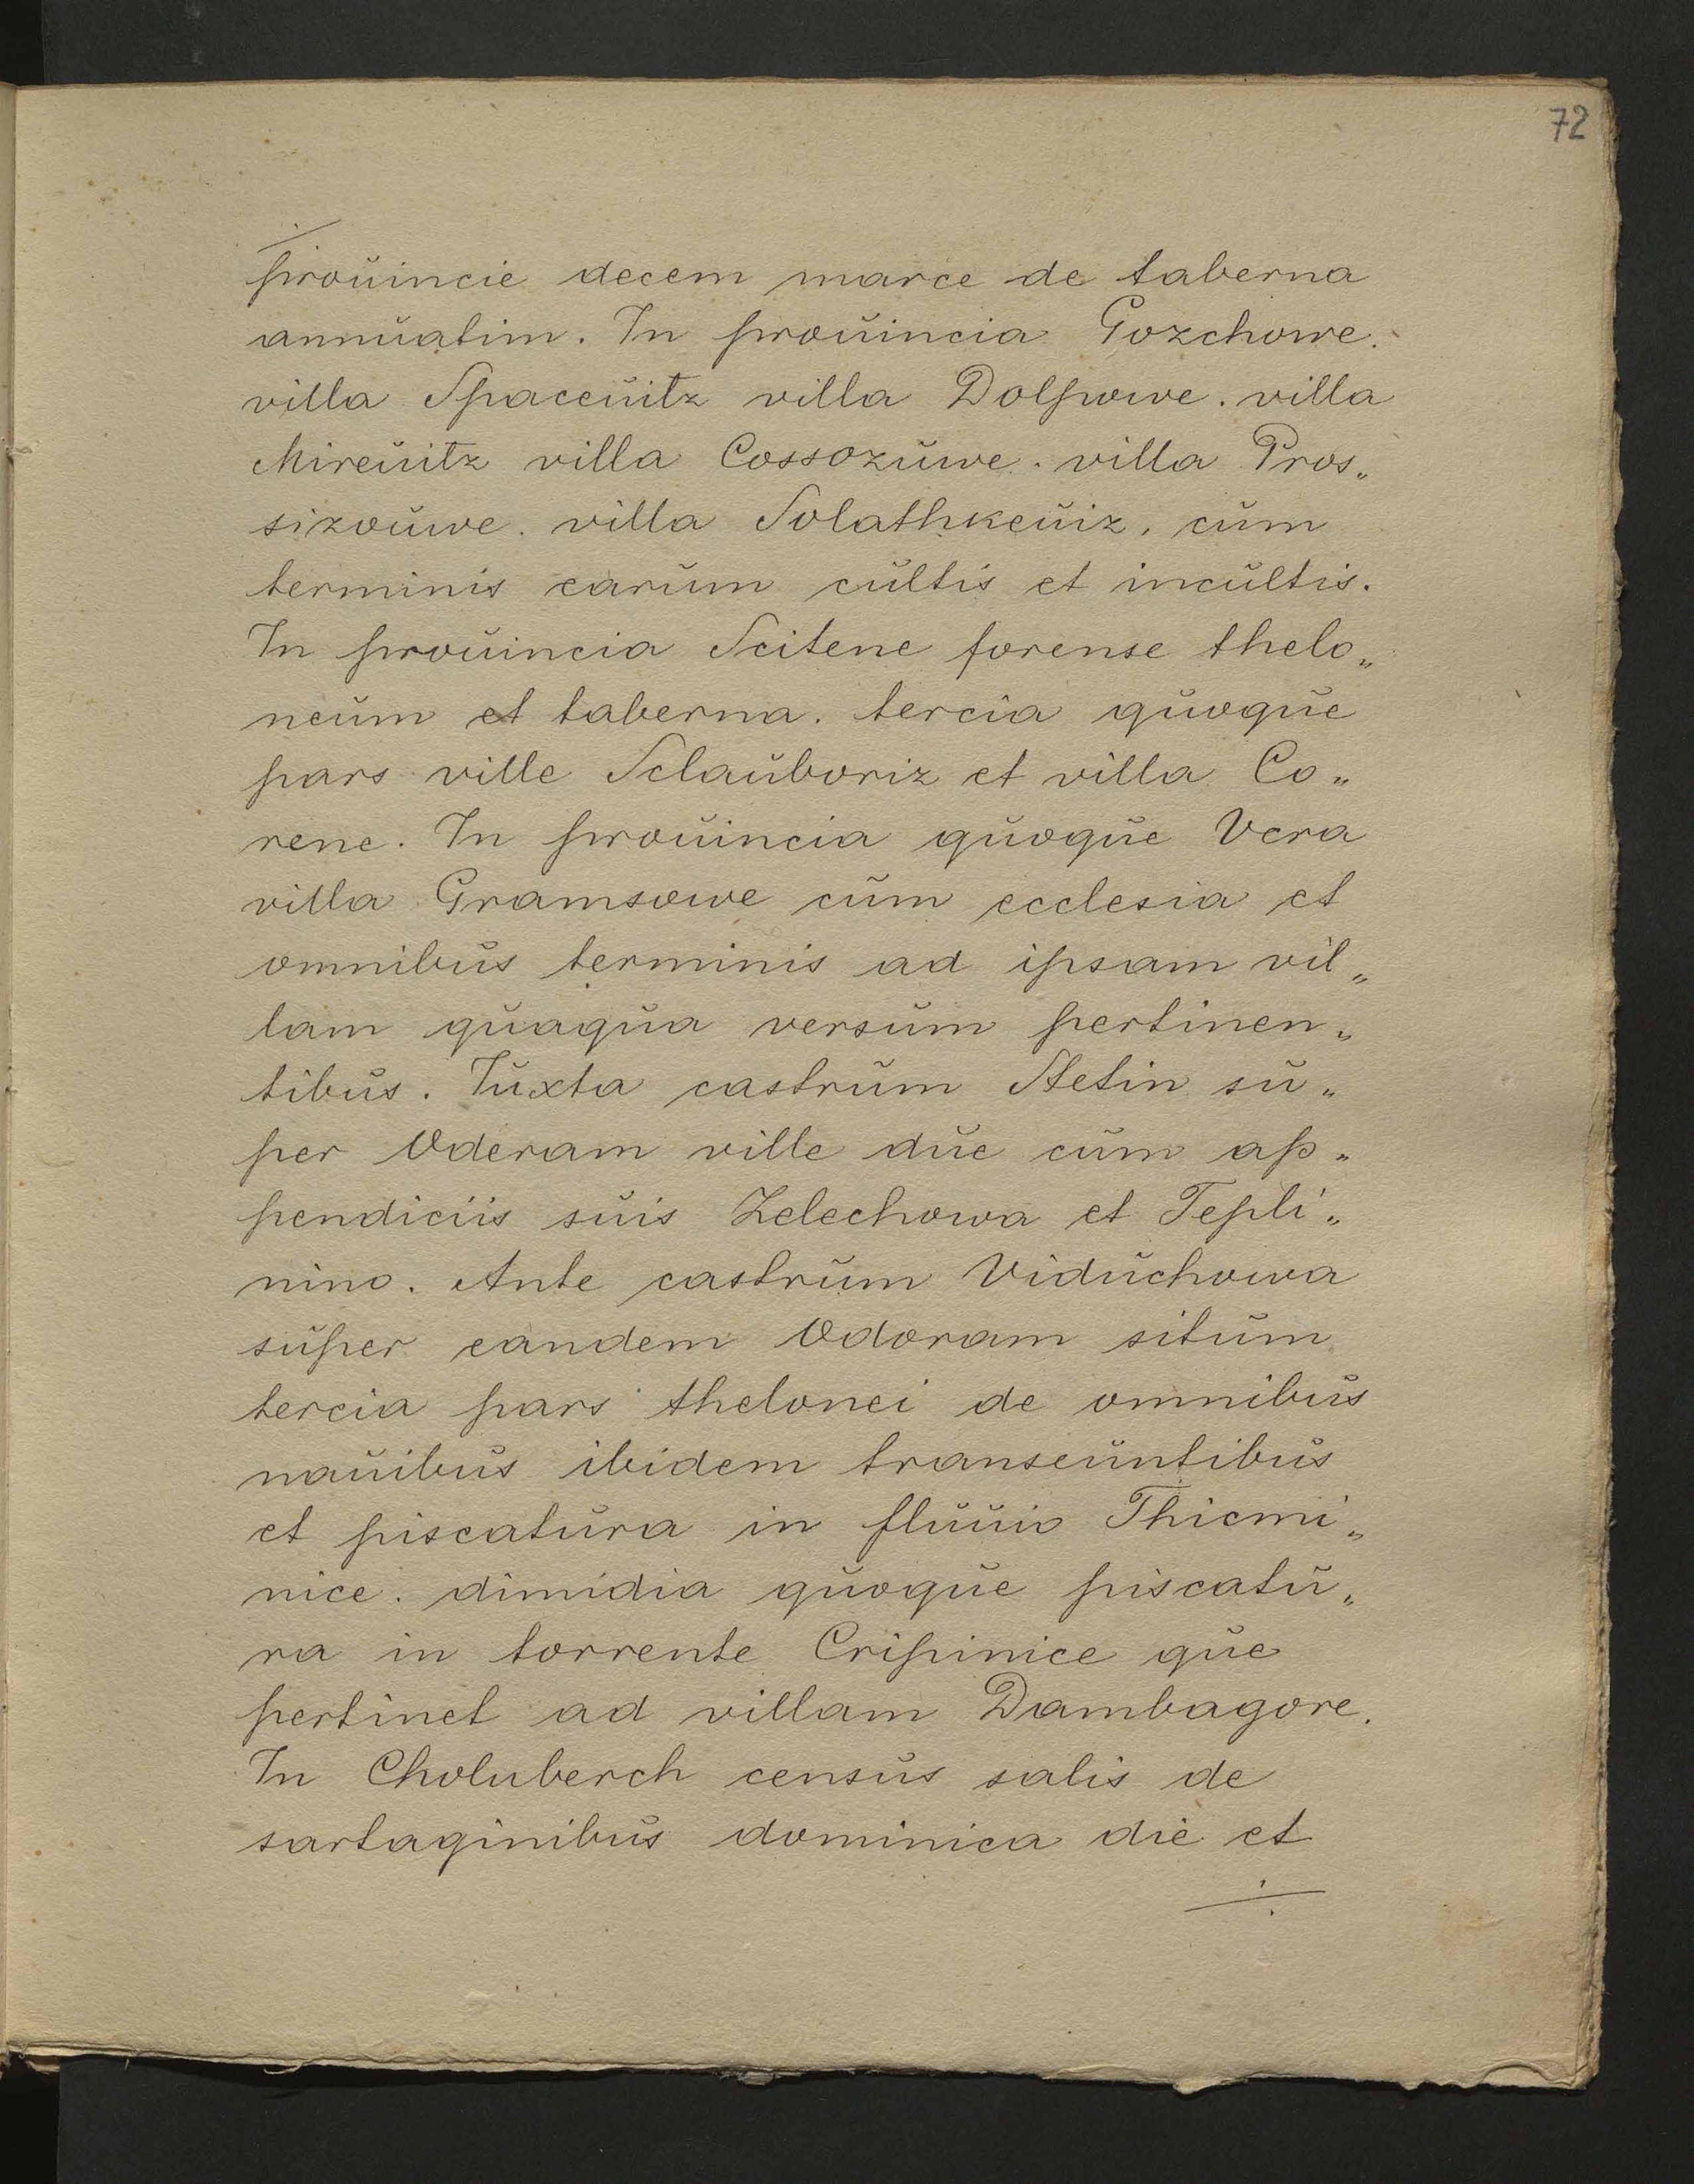 72
prouincie decem marce de taberna
annuatim. In prouincia Gozchowe.
villa Spaceuitz villa Dolpowe. villa
Mireuitz villa Cossozuwe. villa Pros„
sizouwe. villa Solathkeuiz, cum
terminis earum cultis et incultis.
In prouincia Scitene forense thelo„
neum et taberna. tercia quoque
pars ville Sclauboriz et villa Co„
rene. In prouincia quoque Vcra
villa Gramsowe cum ecclesia et
omnibus terminis ad ipsam vil„
lam quaqua versum pertinen„
tibus. Iuxta castrum Stetin su„
per Oderam ville due cum ap„
pendiciis suis Zelechowa et Tepli„
nino. Ante castrum Viduchowa
super eandem Odoram situm
tercia pars thelonei de omnibus
nauibus ibidem transeuntibus
et piscatura in fluuio Thicmi„
nice. dimidia quoque piscatu„
ra in torrente Cripinice que
pertinet ad villam Dambagore.
In Choluberch census salis de
sartaginibus dominica die et